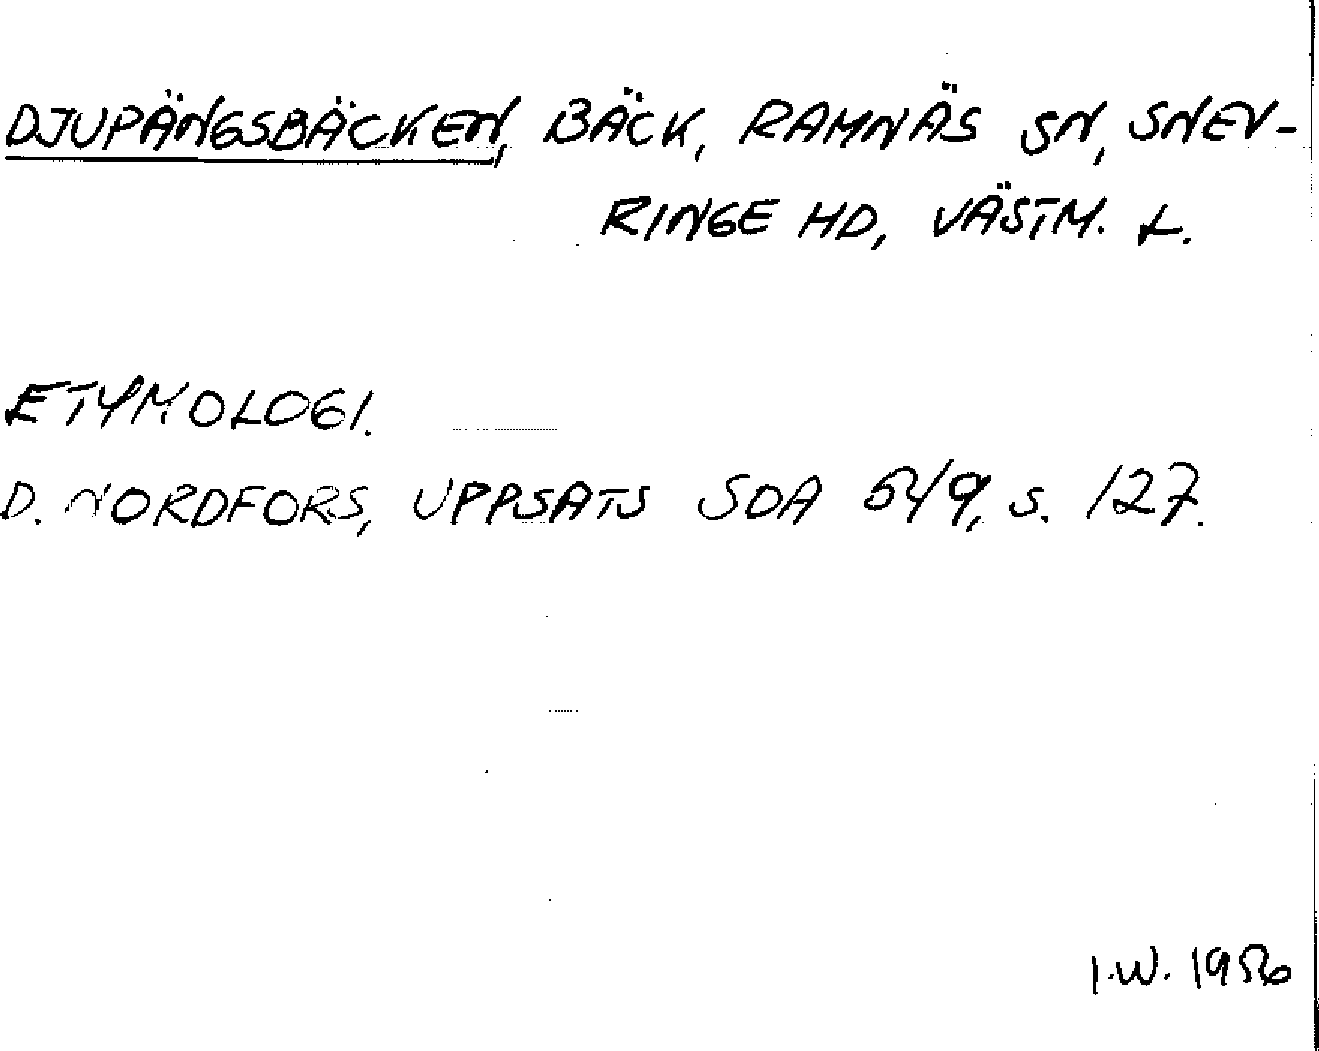 DJUPÄNGSBÄCKEN, BÄCK, RAMNÄS SN, SNEV-
RINGE HD, VÄSTM. L.
ETYMOLOGI.
D. NORDFORS, UPPSATS SOA 549, S. 127.
I.W. 1956